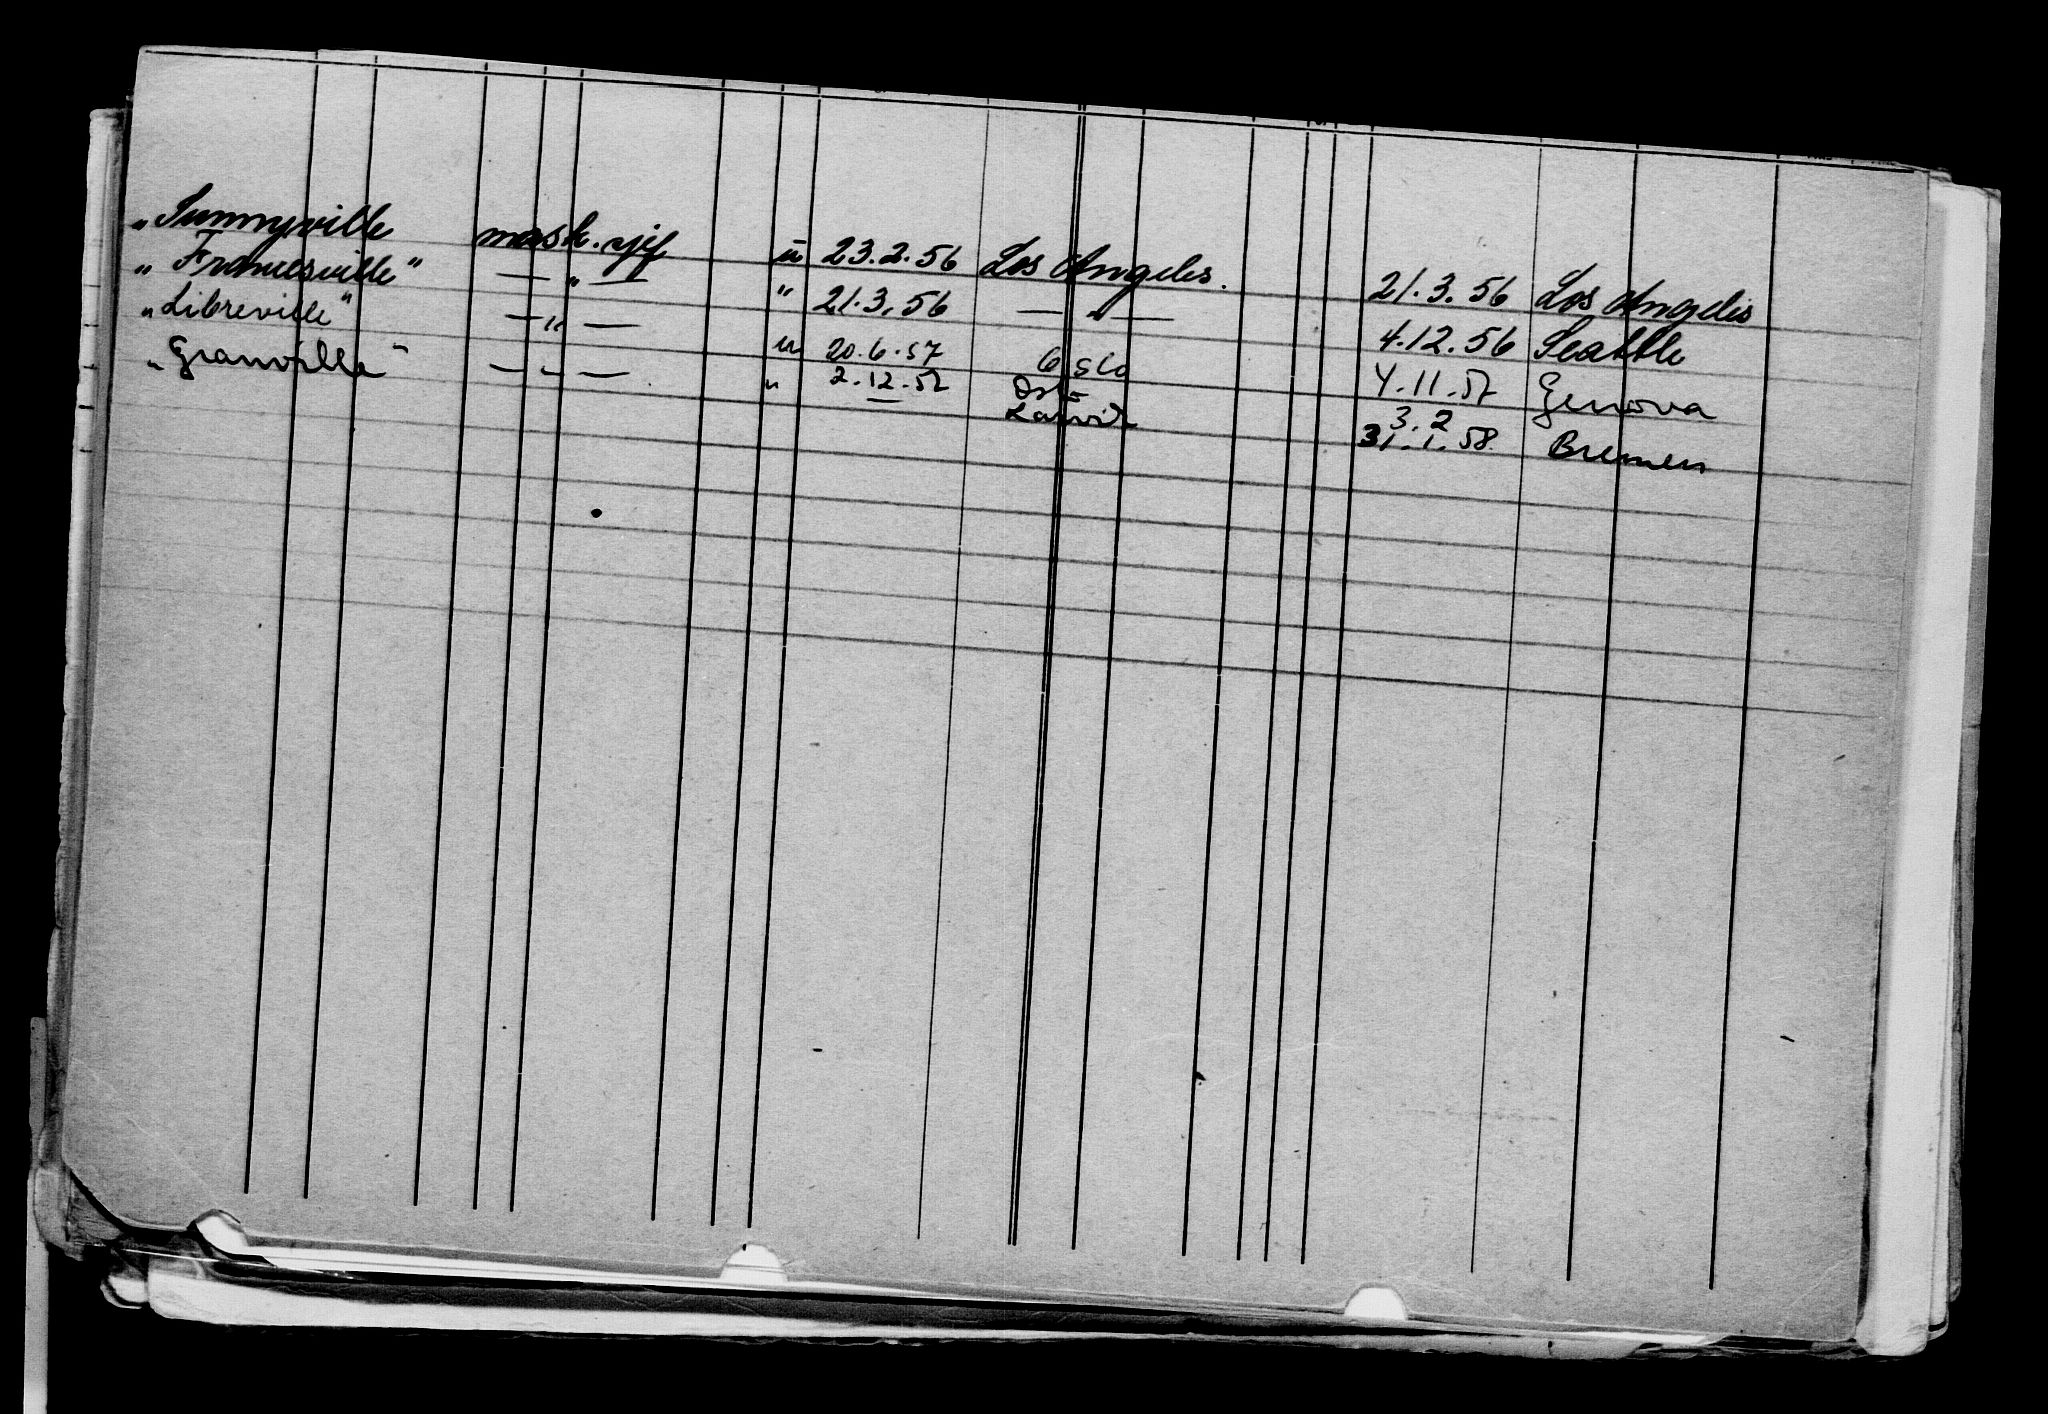 "Sunnyville mask. sjef u 23.2.56 Los Angeles. 21.3.56 Los Angelis
"Francisville" — " — " 21.3.56 — " — 4.12.56 Seattle
"Libreville" — " — u 20.6.57 Oslo 4.11.57 Genova
"Granville" — " — " 2.12.57 Oslo 3.2
Larvik 31.1.58. Bremen